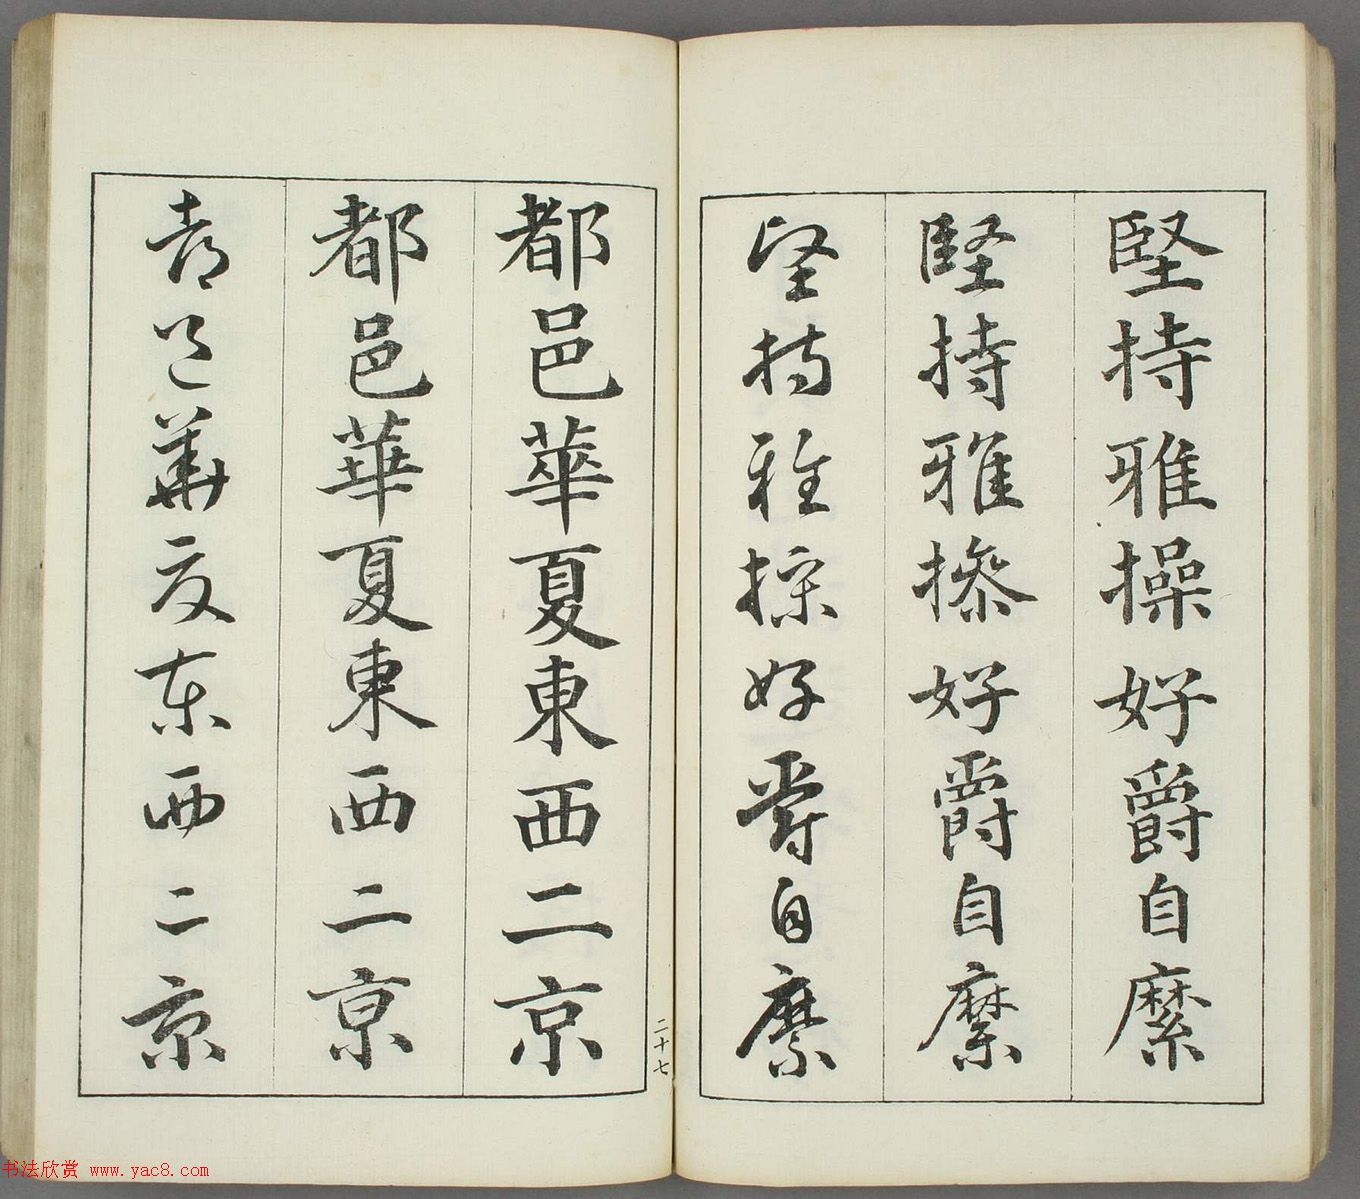 堅持雅操好爵自縻
堅持雅操好爵自縻
堅持雅操好爵自縻
都邑華夏東西二京
都邑華夏東西二京
都邑華夏東西二京
二十七
书法欣赏 www.yac8.com